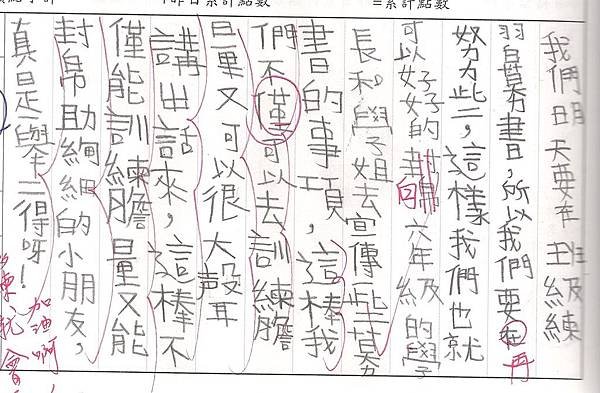 +昨日累計點數
=累計點數
我們明天要在班級練
習募書,所以我們要在再
努力些,這樣我們也就
可以好好的幫六年級的學
長和學姐去宣傳一些募
書的事項,這棒我
們不僅可以去訓練膽
量又可以很大聲
講出話來,這棒不
僅能訓練膽量又能
幫助細細的小朋友,
真是一舉二得呀!
加油啊,
就會